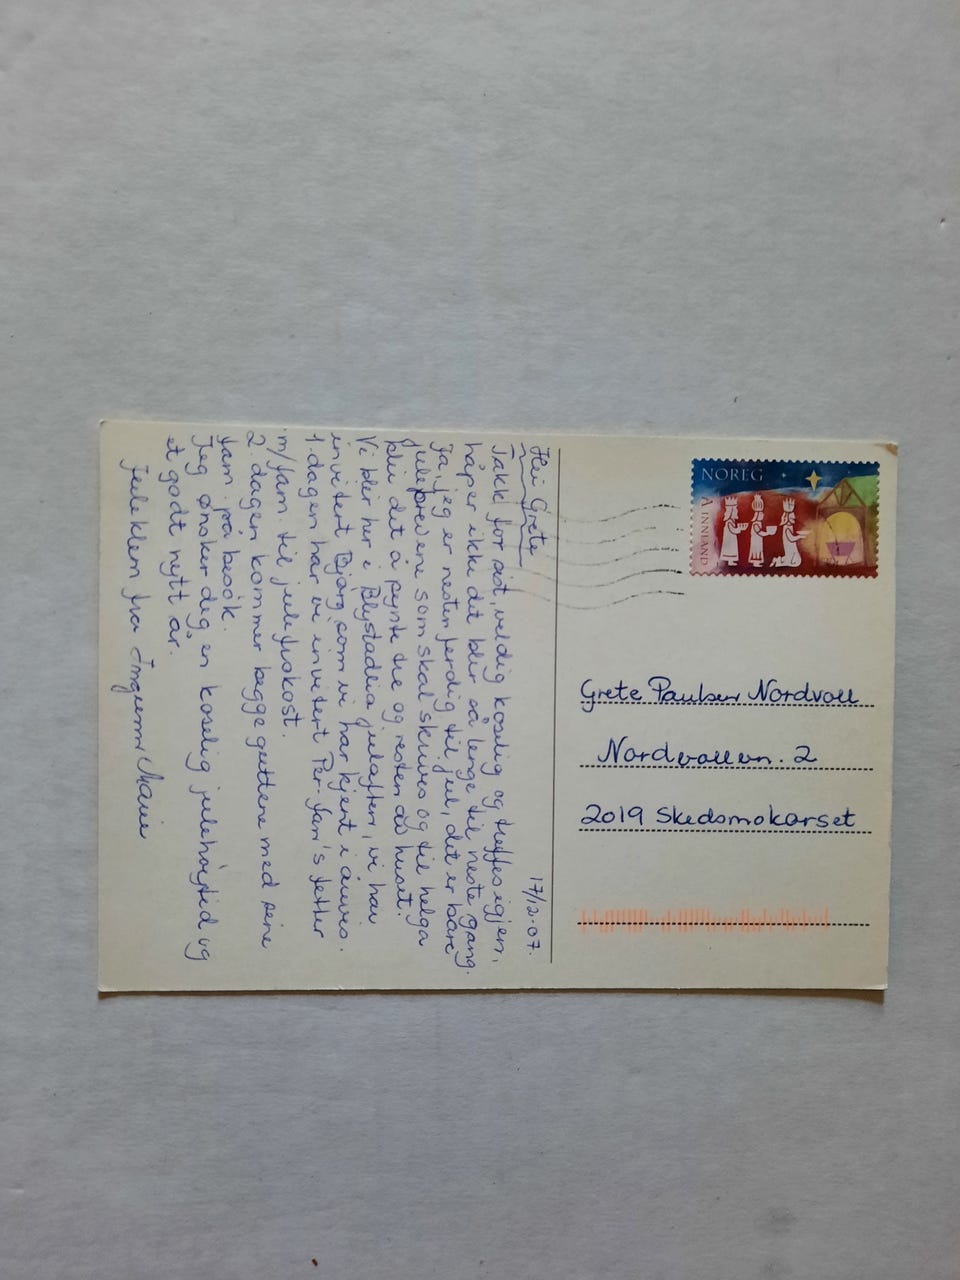 17/12-07.
Hei Grete
Takk for sist, veldig koselig og treffes igjen,
håper ikke det blir så lenge til neste gang.
Ja, jeg er nesten ferdig til jul, det er bare
julebrevene som skal skrives og til helga
blir det å pynte tre og resten av huset.
Vi blir her i Blystadlia julaften, vi har
invitert Bjørg som vi har kjent i årevis.
1. dagen har vi invitert Per-Jan's fetter
m/fam. til julefrokost.
2. dagen kommer begge guttene med sine
fam. på besøk.
Jeg ønsker deg en koselig julehøytid og
et godt nytt år.
Juleklem fra Ingunn Marie
NOREG
A INNLAND
Grete Paulsen Nordvoll
Nordvollvn. 2
2019 Skedsmokorset